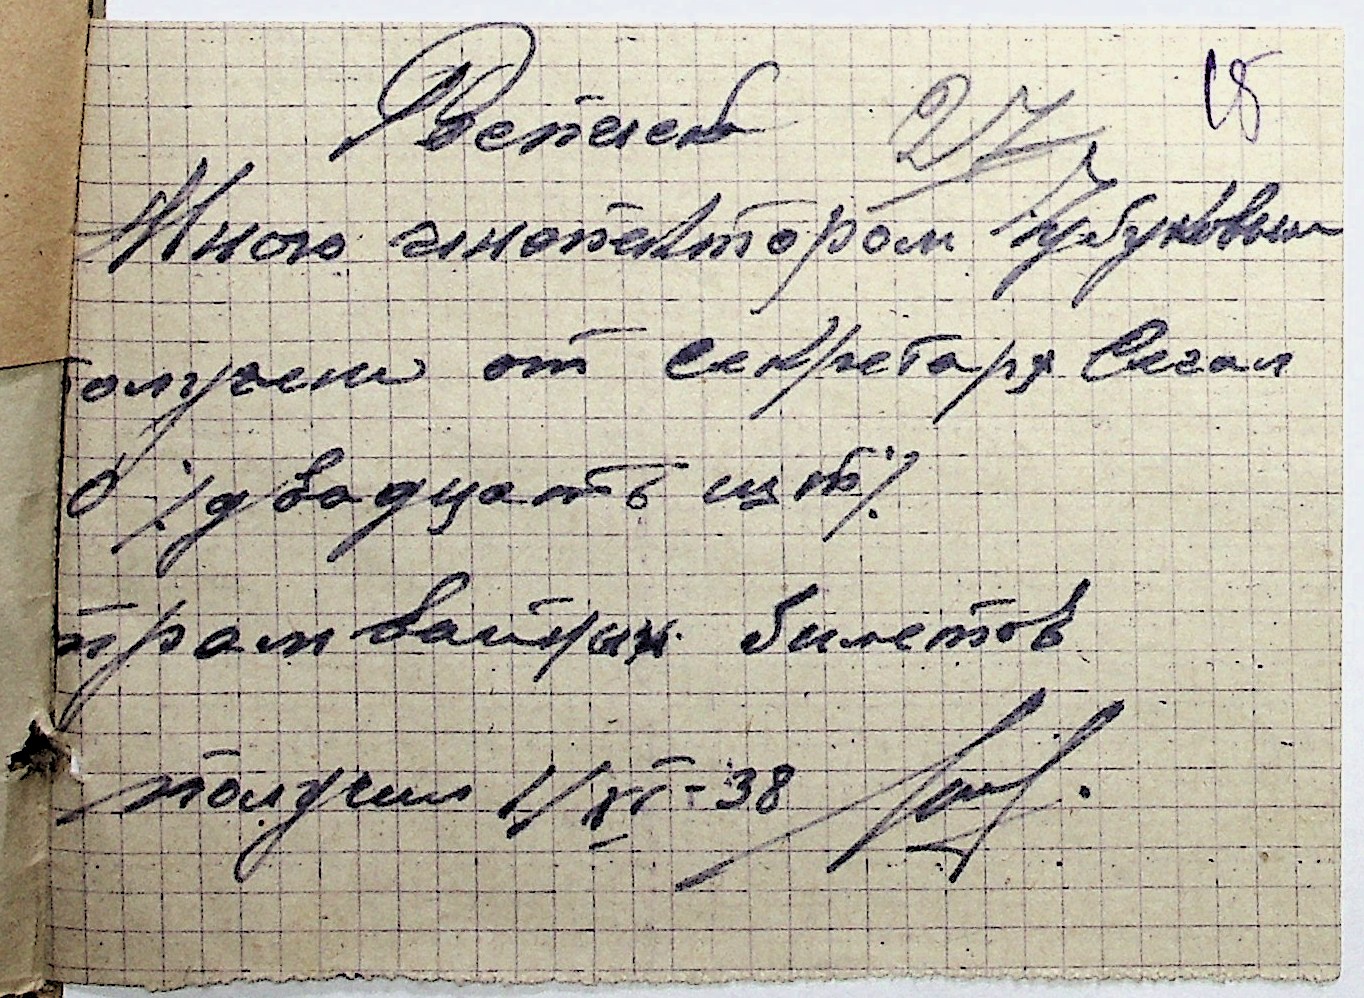 Расписка 27 18
Мною инспектором Чубуковым
получено от секретаря Сегал
0 /двадцать шт/
трамвайных билетов
получил 1/XI-38